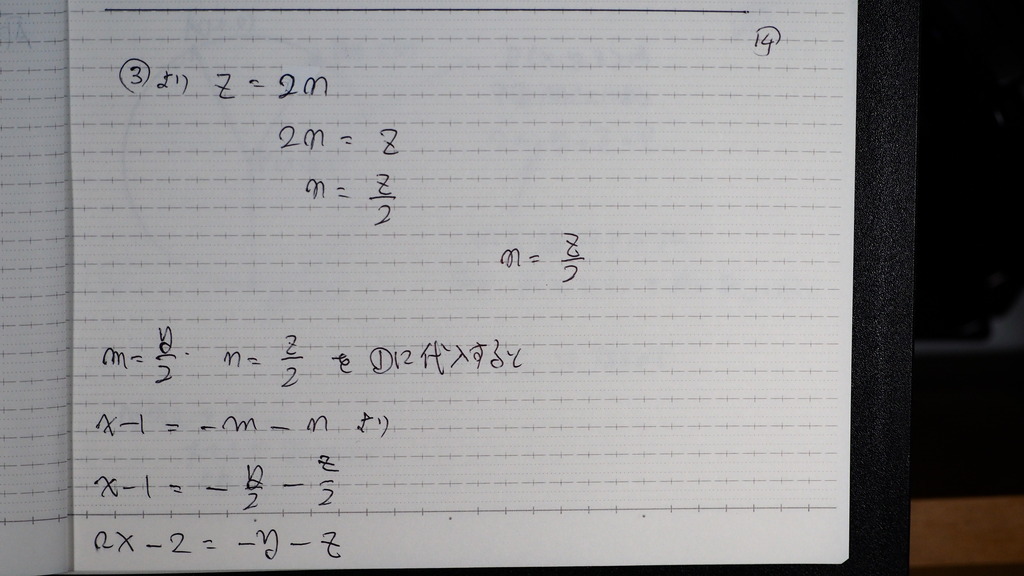 ⑭
③より z = 2n
2n = z
n = z/2
n = z/2
m = y/2. n = z/2 を①に代入すると
x-1 = -m - n より
x-1 = - y/2 - z/2
2x - 2 = -y - z